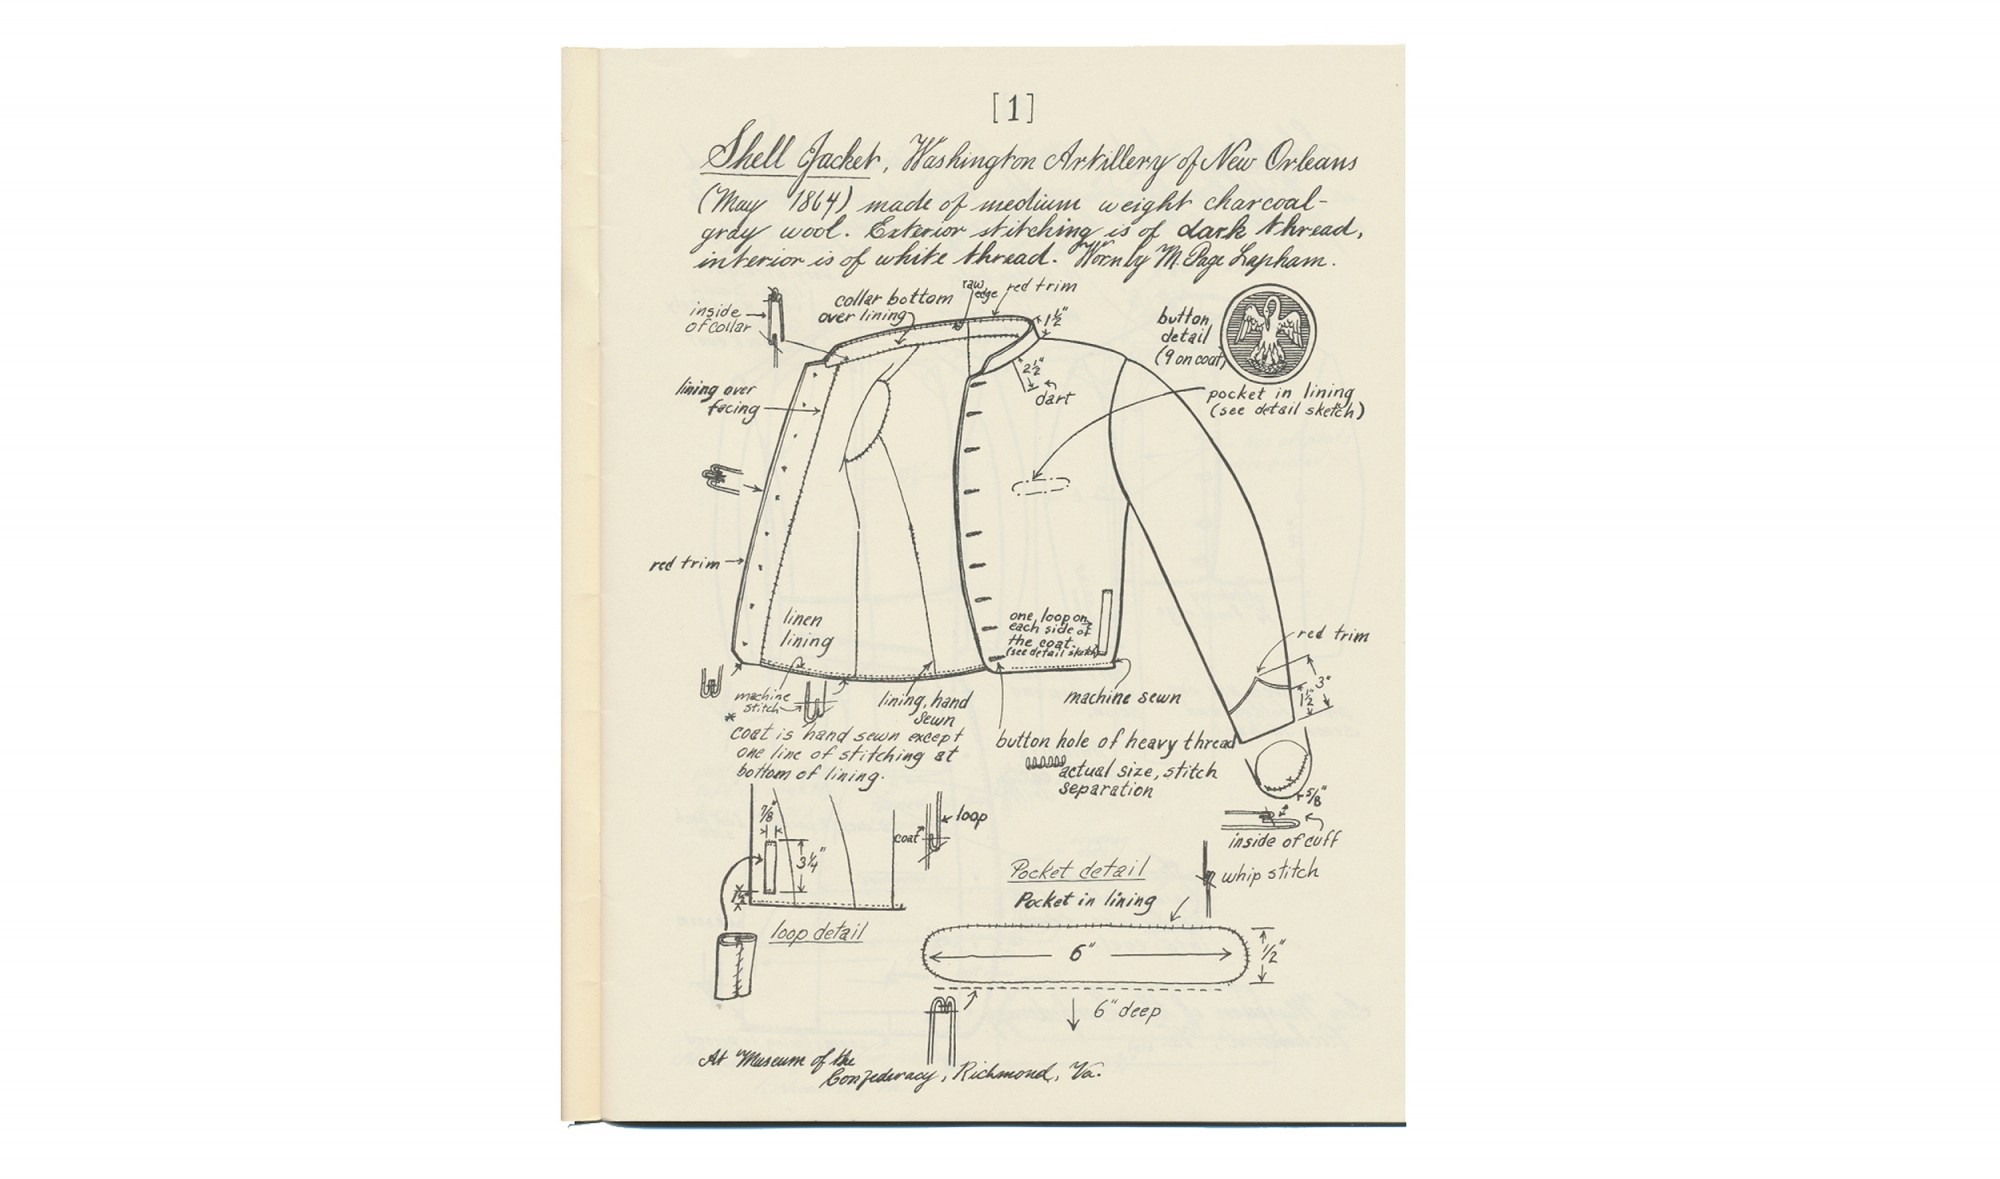 [1]
Shell Jacket, Washington Artillery of New Orleans
(May 1864) made of medium weight charcoal-
gray wool. Exterior stitching is of dark thread,
interior is of white thread. Worn by M. Page Lapham.
inside
of collar
collar bottom
over lining
raw
edge
red trim
1½"
button
detail
(9 on coat)
2½"
dart
pocket in lining
(see detail sketch)
lining over
facing
red trim
linen
lining
one loop on
each side of
the coat.
(see detail sketch)
red trim
3"
1½"
machine
stitch
lining, hand
sewn
machine sewn
* coat is hand sewn except
one line of stitching at
bottom of lining.
button hole of heavy thread
actual size, stitch
separation
5/8"
inside of cuff
7/8"
3¼"
1½"
coat
loop
loop detail
Pocket detail
Pocket in lining
whip stitch
6"
1/2"
6" deep
At Museum of the
Confederacy, Richmond, Va.